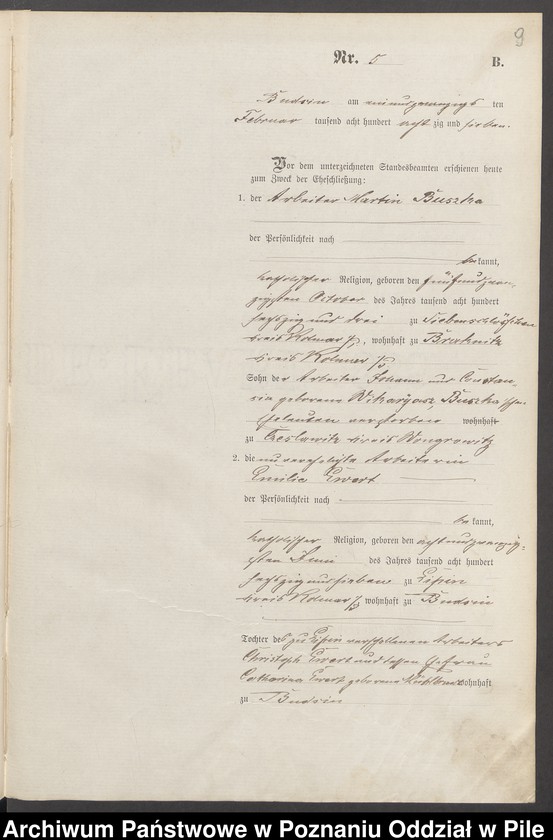 9
Nr. 5
B.
Budsin am einundzwanzigs ten
Februar tausend acht hundert acht zig und sieben.
Vor dem unterzeichneten Standesbeamten erschienen heute
zum Zweck der Eheschließung:
1. der Arbeiter Martin Buszka
der Persönlichkeit nach
bekannt,
katholischer Religion, geboren den fünfundzwan-
zigsten October des Jahres tausend acht hundert
sechszig und drei zu Siebenschlößchen
Kreis Kolmar i/P, wohnhaft zu
Kreis Kolmar i/P
Sohn der Arbeiter Johann und Constan-
sia geborene Wikaryasz, Buszka'schen
Eheleuten verstorben wohnhaft
zu Czeslawitz Kreis Wongrowitz
2. die unverehelichte Arbeiterin
Emilie Ewert
der Persönlichkeit nach
bekannt,
katholischer Religion, geboren den achtundzwanzig-
sten Juni des Jahres tausend acht hundert
sechszig und sieben zu Lipin
Kreis Kolmar i/P wohnhaft zu Budsin
Tochter des zu Lipin verschollenen Arbeiters
Christoph Ewert und dessen Ehefrau
Catharina Ewert geborene wohnhaft
zu Budsin
Archiwum Państwowe w Poznaniu Oddział w Pile